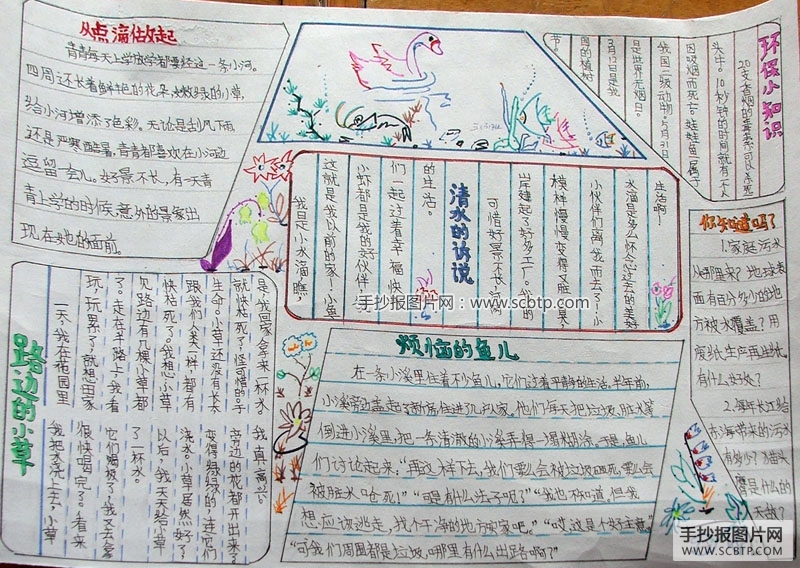 从点滴做起
青青每天上学放学都要经过一条小河。
四周还长着鲜艳的花朵,嫩绿的小草,
给小河增添了色彩。无论是刮风下雨
还是严寒酷暑,青青都喜欢在小河边
逗留一会儿。好景不长,有一天青
青上学的时候,意外的景象出
现在她的面前。
环保小知识
20支香烟的毒素可以杀死
头牛。10秒钟的时间就有一个人
因吸烟而死亡。娃娃鱼属于
我国二级动物。5月31日
是世界无烟日。
3月12日是我
国的植树
节。
清水的诉说
我是小水滴,瞧,
这就是我以前的家!小鱼
小虾都是我的好伙伴,
们一起过着幸福快
的生活。
可惜好景不长,河两
岸建起了好多工厂。我的
模样慢慢变得又脏又臭
小伙伴们离我而去了!小
水滴是多么怀念过去的美好
生活啊!
你知道吗?
1.家庭污水
从哪里来?地球表
面有百分多少的地
方被水覆盖?用
废纸生产再生纸
有什么好处?
2.每年长江给
东海带来的污水
有多少?猫头
鹰是什么的
天敌?
路边的小草
一天,我在花园里
玩,玩累了,就想回家
了。走在半路上,我看
见路边有几棵小草都
快枯死了。我想,小草
跟我们人类一样都有
生命。小草还没有长大
就快枯死了,怪可惜的。于
是,我回家拿来一杯水
我把水浇上去,小草
很快喝完了。看来
它们渴极了,我又去拿
了一杯水。
以后,我天天给小草
浇水。小草居然好了
变得绿绿的,连它们
旁边的花都开出来了
我真高兴!
烦恼的鱼儿
在一条小溪里住着不少鱼儿。它们过着平静的生活。半年前,
小溪旁边盖起了新房,住进了几户人家。他们每天把垃圾、脏水等
倒进小溪里,把一条清澈的小溪弄得一塌糊涂。于是,鱼儿
们讨论起来:“再这样下去,我们要么会被垃圾砸死,要么会
被脏水呛死!”“可是有什么法子呢?”“我也不知道,但我
想应该逃走,找个干净的地方安家吧。”“哎,这是个好主意
“可我们周围都是垃圾,哪里有什么出路啊?”
手抄报图片网:www.scbtp.com
手抄报图片网
WWW.SCBTP.COM